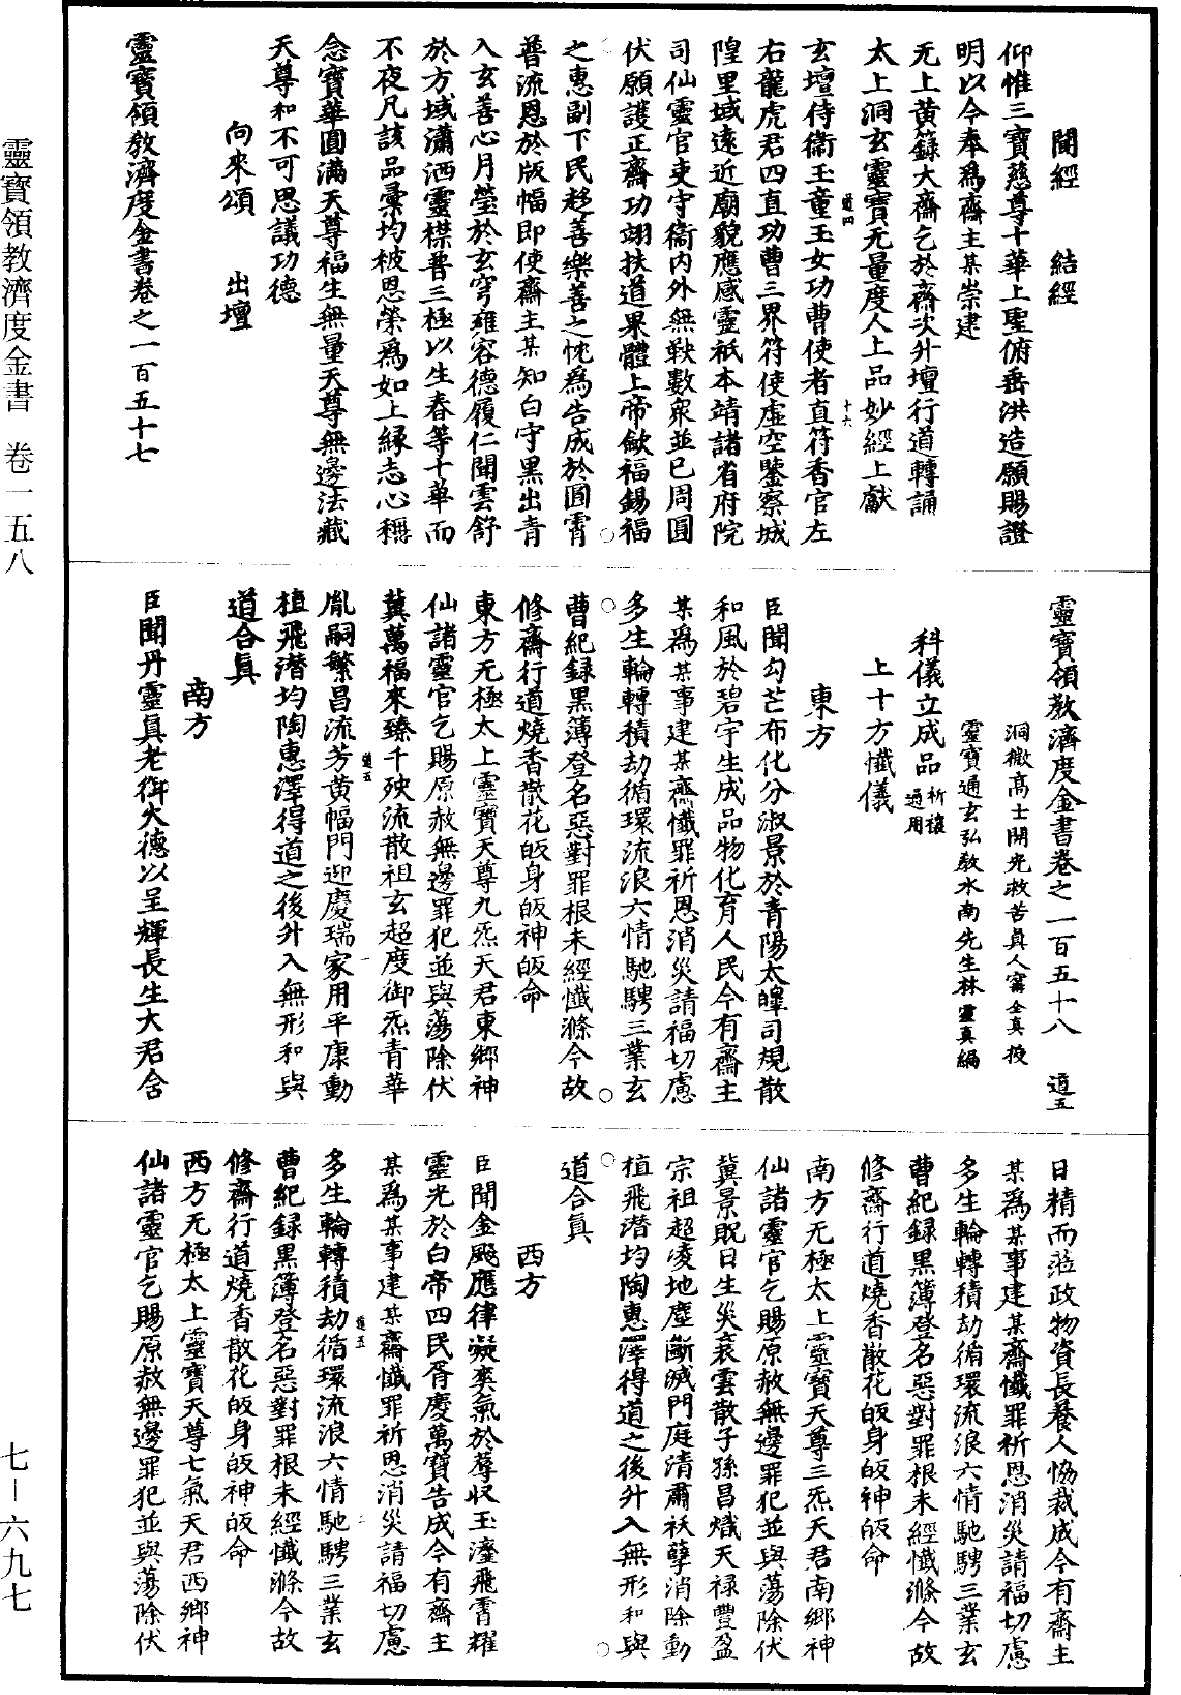 聞經　結經
仰惟三寶慈尊十華上聖俯垂洪造願賜證
明以今奉爲齋主某崇建
无上黄籙大齋乞於齋次升壇行道轉誦
太上洞玄靈寶无量度人上品妙經上獻
玄壇侍衞玉童玉女功曹使者直符香官左
右龍虎君四直功曹三界符使虛空鑒察城
隍里域遠近廟貌應感靈祇本靖諸省府院
司仙靈官吏守衞内外無鞅數衆並已周圓
伏願護正齋功翊扶道果體上帝歆福錫福
之惠副下民趍善樂善之忱爲告成於圓霄
普流恩於版幅即使齋主某知白守黑出青
入玄善心月瑩於玄穹雍容德履仁聞雲舒
於方域瀟洒靈襟普三極以生春等十華而
不夜凡該品彙均被恩榮爲如上緣志心稱
念寶華圓滿天尊福生無量天尊無邊法藏
天尊和不可思議功德
向來頌　出壇
靈寶領教濟度金書卷之一百五十七
道四
十六
靈寶領教濟度金書卷之一百五十八　道五
洞微高士開光救苦眞人甯全真授
靈寶通玄弘教水南先生林靈真編
科儀立成品祈禳通用
上十方懺儀
東方
臣聞勾芒布化分淑景於青陽太皥司規散
和風於碧宇生成品物化育人民今有齋主
某爲某事建某齋懺罪祈恩消災請福切慮
多生輪轉積劫循環流浪六情馳騁三業玄
曹紀録黒簿登名惡對罪根未經懺滌今故
修齋行道燒香散花皈身皈神皈命
東方无極太上靈寶天尊九炁天君東鄉神
仙諸靈官乞賜原赦無邊罪犯並與蕩除伏
冀萬福來臻千殃流散祖玄超度御炁青華
胤嗣繁昌流芳黄幅門迎慶瑞家用平康動
植飛潛均陶惠澤得道之後升入無形和與
道合眞
南方
臣聞丹靈真老御火德以呈輝長生大君含
道五
一
日精而涖政物資長養人恊裁成今有齋主
某爲某事建某齋懺罪祈恩消災請福切慮
多生輪轉積劫循環流浪六情馳騁三業玄
曹紀録黒簿登名惡對罪根未經懺滌今故
修齋行道燒香散花皈身皈神皈命
南方无極太上靈寶天尊三炁天君南鄉神
仙諸靈官乞賜原赦無邊罪犯並與蕩除伏
冀景貺日生災衺雲散子孫昌熾天禄豐盈
宗祖超凌地塵斷滅門庭清肅袄孽消除動
植飛潛均陶惠澤得道之後升入無形和與
道合眞
西方
臣聞金飈應律凝爽氣於蓐收玉瀣飛霄耀
靈光於白帝四民胥慶萬寶告成今有齋主
某爲某事建某齋懺罪祈恩消災請福切慮
多生輪轉積劫循環流浪六情馳騁三業玄
曹紀録黒簿登名惡對罪根未經懺滌今故
修齋行道燒香散花皈身皈神皈命
西方无極太上靈寶天尊七氣天君西鄉神
仙諸靈官乞賜原赦無邊罪犯並與蕩除伏
道五
二
靈寶領教濟度金書　卷一五八
七—六九七